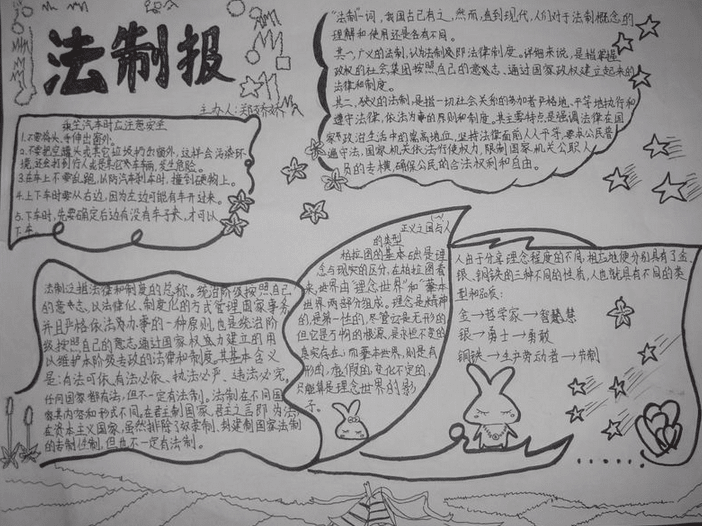 法制报
主办人:郑娇娇
"法制"一词,我国古已有之,然而,直到现代,人们对于法制概念的
理解和使用还是各有不同。
其一,广义的法制,认为法制即法律制度。详细来说,是指掌握
政权的社会集团按照自己的意志,通过国家政权建立起来的
法律和制度。
其二,狭义的法制,是指一切社会关系的参加者严格地、平等地执行和
遵守法律,依法办事的原则和制度。其主要特点是强调法律在国
家政治生活中的崇高地位,坚持法律面前人人平等,要求公民普
遍守法,国家机关依法行使权力,限制国家机关公职人
员的专横,确保公民的合法权利和自由。
乘坐汽车时应注意安全
1.不要将头、手伸出窗外。
2.不要把空罐头或其它垃圾扔出窗外,这样会污染环
境,还会打到行人或是其它的车辆,发生危险。
3.在车上不要乱跑,以防汽车刹车时,撞到硬物上。
4.上下车时要从右边,因为左边可能有车开过来。
5.下车时,先要确定后边有没有车子来,才可以
下车。
法制泛指法律和制度的总称。统治阶级按照自己
的意志,以法律化、制度化的方式管理国家事务,
并且严格依法办事的一种原则,也是统治阶
级按照自己的意志通过国家权力建立的用
以维护本阶级专政的法律和制度,其基本含义
是:有法可依、有法必依、执法必严、违法必究,
任何国家都有法,但不一定有法制。法制在不同国
家其内容和形式不同,在君主制国家,君主之言即为法,
在资本主义国家,虽然排除了奴隶制、封建制国家法制
的专制性制,但也不一定有法制。
正义之国与人
的类型
柏拉图的基本出发是理
念与现实的区分,在柏拉图看
来,世界由"理念世界"和"摹本
世界"两部分组成。理念是精神
的,是第一性的,尽管它是无形的
但它是万物的根源,是永恒不变的
真实存在;而摹本世界,则是有
形的,虚假的,变化不定的,
只能算是理念世界的影
子。
人由于分享理念程度的不同,相应地便分别具有了金、
银、铜铁的三种不同的性质,人也就具有不同的类
型和品质:
金→哲学家→智慧
银→勇士→勇敢
铜铁→生产劳动者→节制